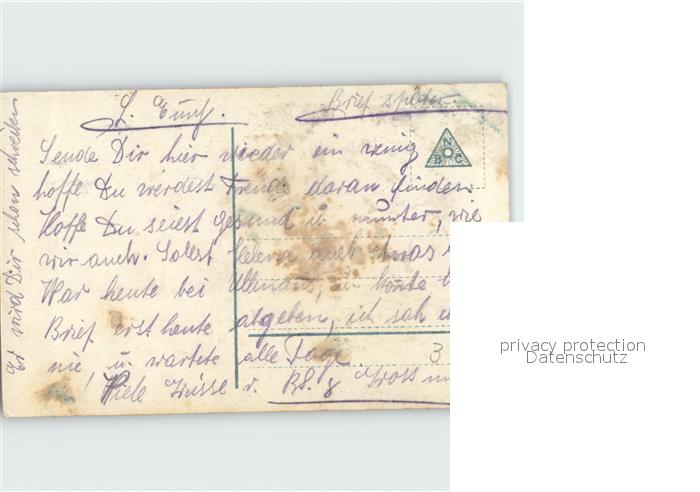 Brief später.
L.
Sende Dir hier wieder ein wenig
hoffe Du werdest Freude daran finden.
Hoffe Du seiest gesund u. munter, wie
wir auch. Sollst Helena auch etwas
War heute bei
Brief erst heute abgeben, ich sah
nie, u. wartete alle Tage.
Viele Grüsse v.
Er wird Dir schon schreiben
N
B G
3
privacy protection
Datenschutz